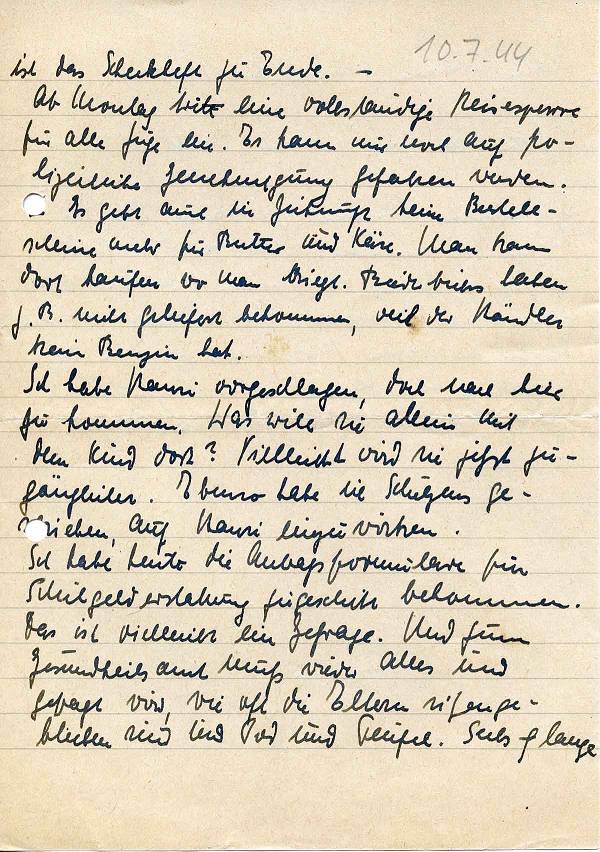 10.7.44
ist das Scheckheft zu Ende. –
Ab Montag tritt eine vollständige Reisesperre
für alle Züge ein. Es kann nur noch auf po-
lizeiliche Genehmigung gefahren werden.
Es gibt auch in Zukunft keine Bestell-
scheine mehr für Butter und Käse. Man kann
dort kaufen wo man kriegt. haben
z. B. nicht geliefert bekommen, weil der Händler
kein Benzin hat.
Ich habe Hanni vorgeschlagen, doch nach hier
zu kommen. Was will sie allein mit
dem Kind dort? Vielleicht wird sie jetzt zu-
gänglicher. Ebenso habe ich Schützens ge-
schrieben, auf Hanni einzuwirken.
Ich habe heute die Antragsformulare für
Schulgelderstattung zugeschickt bekommen.
Das ist vielleicht ein Gefrage. Und zum
Gesundheitsamt muß wieder alles und
gefragt wird, wie oft die Eltern sitzenge-
blieben sind und Tod und Teufel. Sechs lange